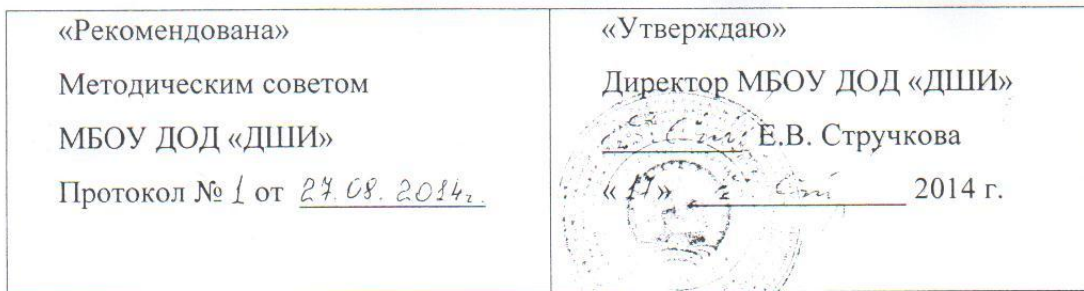 «Рекомендована»
Методическим советом
МБОУ ДОД «ДШИ»
Протокол № 1 от 27.08.2014г.
«Утверждаю»
Директор МБОУ ДОД «ДШИ»
Е.В. Стручкова
« » 2014 г.